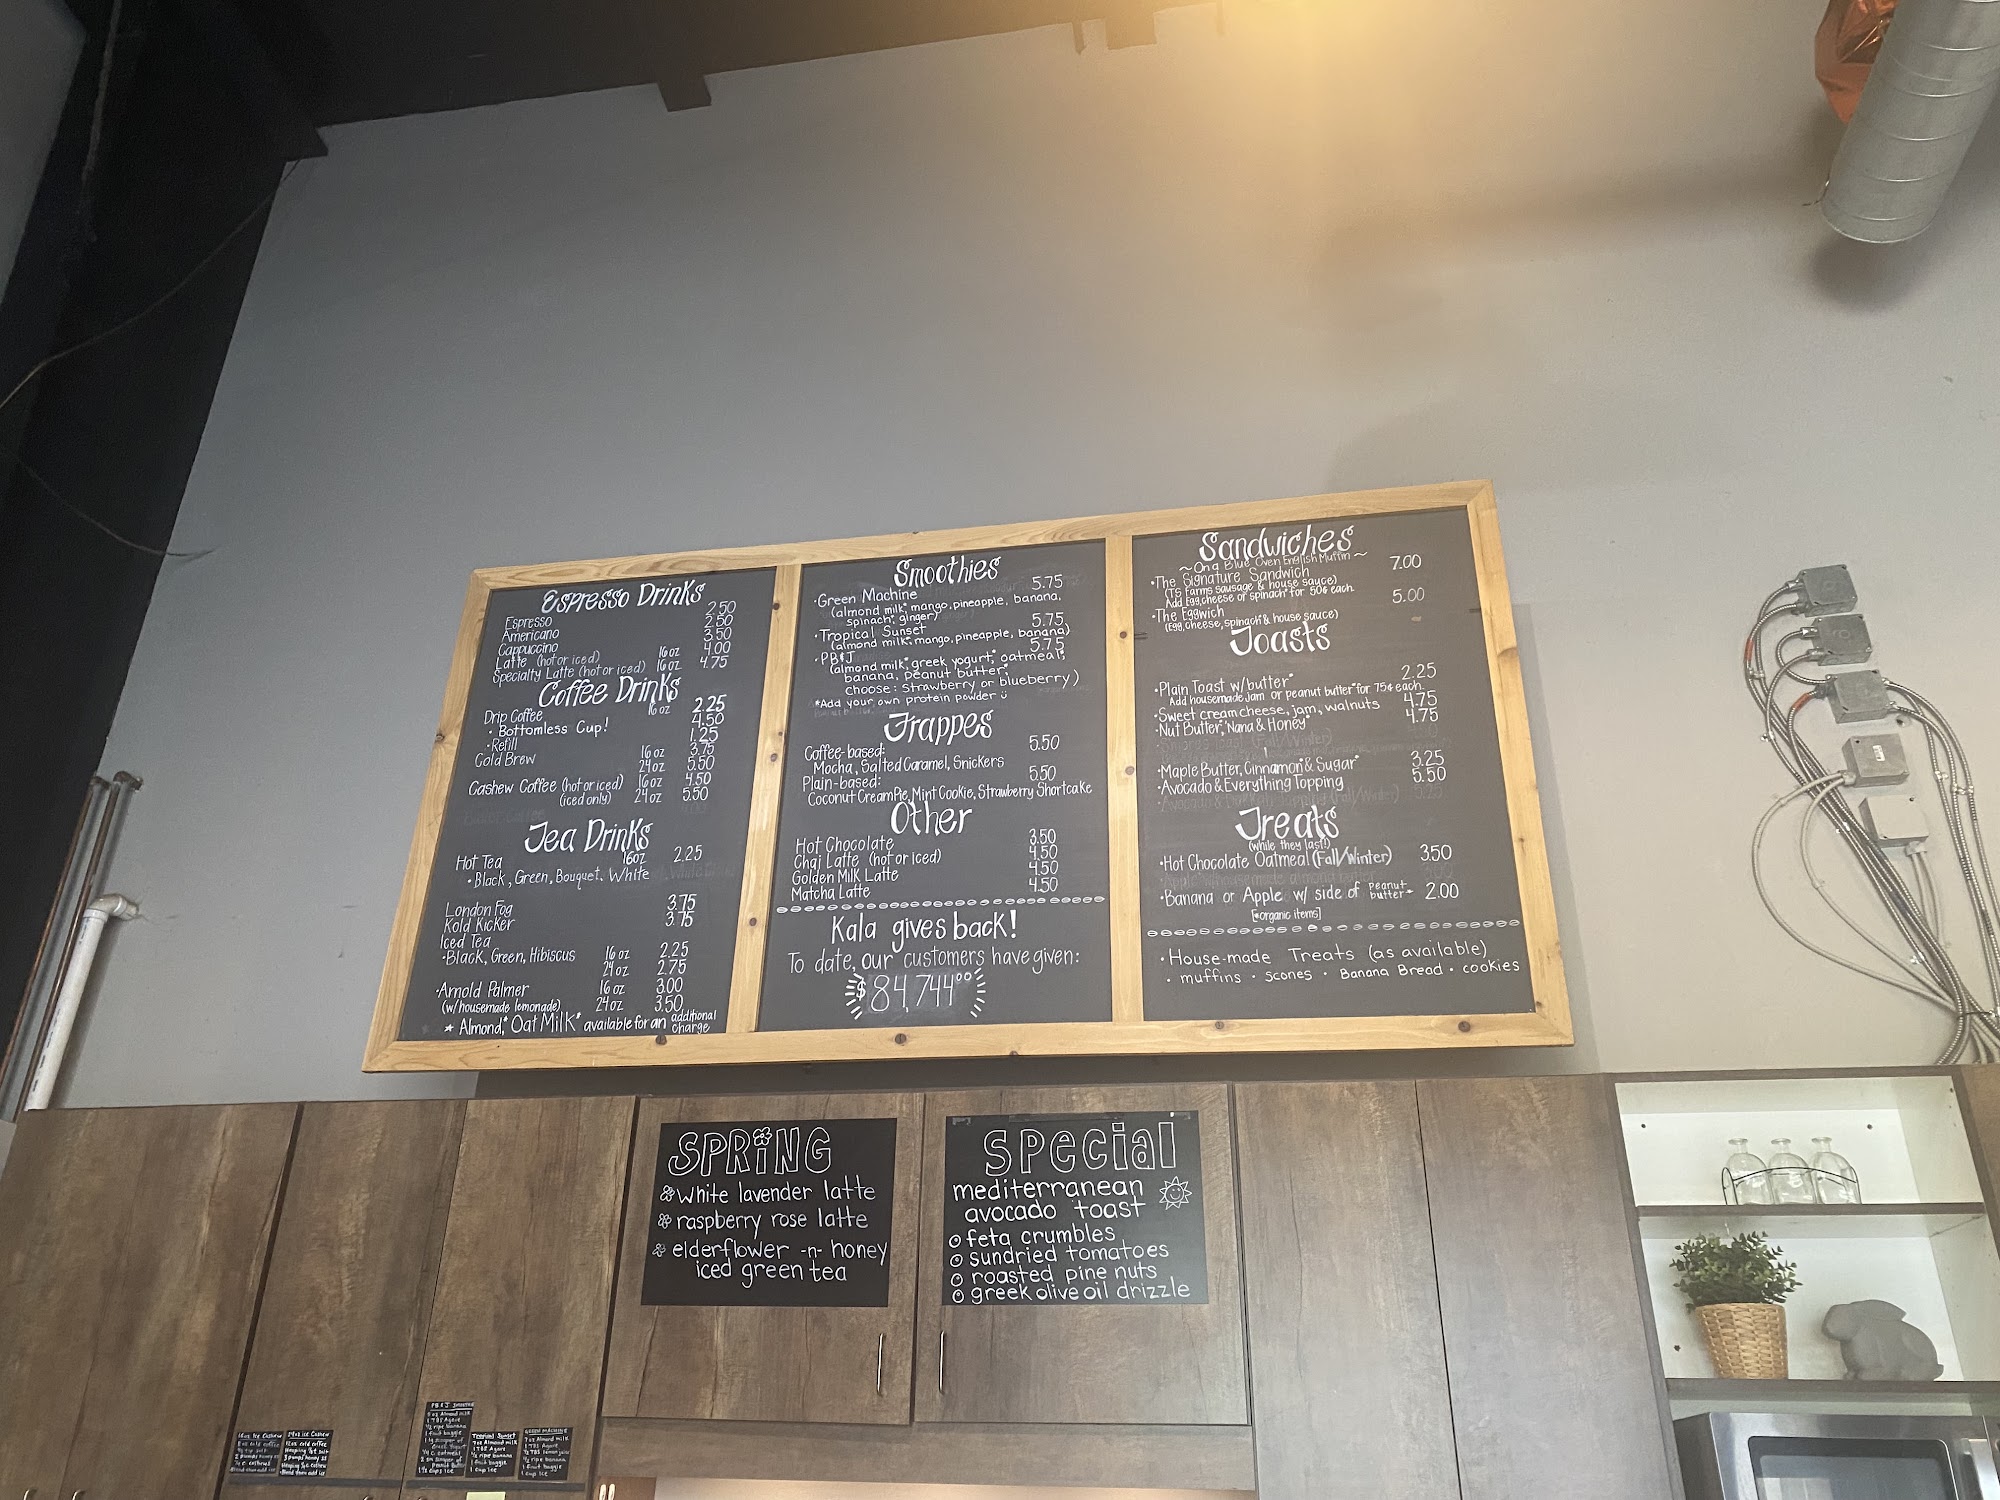 Espresso Drinks
Espresso 2.50
Americano 2.50
Cappuccino 3.50
Latte (hot or iced) 16oz 4.00
Specialty Latte (hot or iced) 16oz 4.75
Coffee Drinks
Drip Coffee 16 oz 2.25
• Bottomless Cup! 4.50
•Refill 1.25
Cold Brew 16 oz 3.75
24oz 5.50
Cashew Coffee (hot or iced) 16oz 4.50
(iced only) 24oz 5.50
Tea Drinks
Hot Tea 16oz 2.25
•Black, Green, Bouquet, White
London Fog 3.75
Kold Kicker 3.75
Iced Tea
•Black, Green, Hibiscus 16oz 2.25
24oz 2.75
•Arnold Palmer 16oz 3.00
(w/housemade lemonade) 24oz 3.50
* Almond,* Oat Milk* available for an additional charge
Smoothies
•Green Machine 5.75
(almond milk,* mango, pineapple, banana,
spinach,* ginger)
•Tropical Sunset 5.75
(almond milk,* mango, pineapple, banana)
•PB&J 5.75
(almond milk,* greek yogurt,* oatmeal,*
banana, peanut butter,*
choose: strawberry or blueberry)
*Add your own protein powder
Frappes
Coffee-based: 5.50
Mocha, Salted Caramel, Snickers
Plain-based: 5.50
Coconut Cream Pie, Mint Cookie, Strawberry Shortcake
Other
Hot Chocolate 3.50
Chai Latte (hot or iced) 4.50
Golden Milk Latte 4.50
Matcha Latte 4.50
Kala gives back!
To date, our customers have given:
$84,744.00
Sandwiches
~On a Blue Oven English Muffin~
•The Signature Sandwich 7.00
(TS Farms sausage & house sauce)
Add Egg, cheese or spinach* for 50¢ each.
•The Eggwich 5.00
(Egg, cheese, spinach* & house sauce)
Toasts
•Plain Toast w/butter* 2.25
Add housemade jam or peanut butter* for 75¢ each.
•Sweet cream cheese, jam, walnuts 4.75
•Nut Butter,* Nana & Honey* 4.75
•Maple Butter, Cinnamon* & Sugar* 3.25
•Avocado & Everything Topping 5.50
Treats
(while they last!)
•Hot Chocolate Oatmeal (Fall/Winter) 3.50
•Banana or Apple w/ side of peanut butter* 2.00
[*organic items]
• House-made Treats (as available)
• muffins • scones • Banana Bread • cookies
SPRiNG
white lavender latte
raspberry rose latte
elderflower -n- honey
iced green tea
special
mediterranean
avocado toast
feta crumbles
sundried tomatoes
roasted pine nuts
greek olive oil drizzle